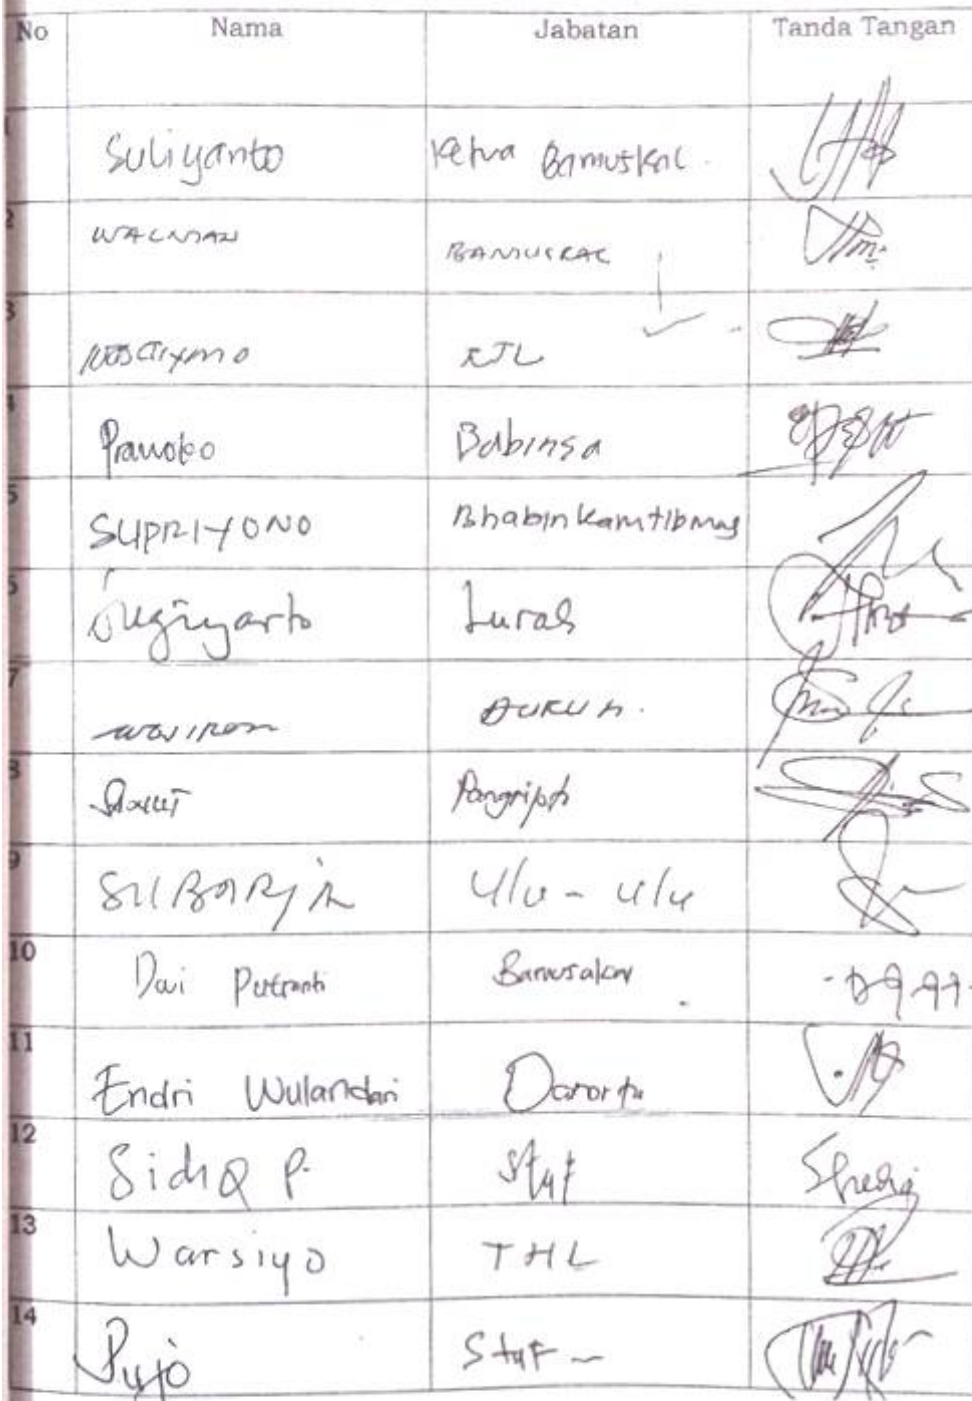 No Nama Jabatan Tanda Tangan
1 Suliyanto Ketua Bamuskal.
2 BAMUSKAL
3
4 Pranoto Babinsa
5 SUPRIYONO Bhabinkamtibmas
6 Sugiyarto Lurah
7 DUKUH.
8 Slamet Pangripta
9 SUBARJA Ulu - ulu
10 Dwi Putranti Bamuskal
11 Endri Wulandari Danarta
12 Sidiq P. Staf
13 Warsiyo THL
14 Pujo Staf